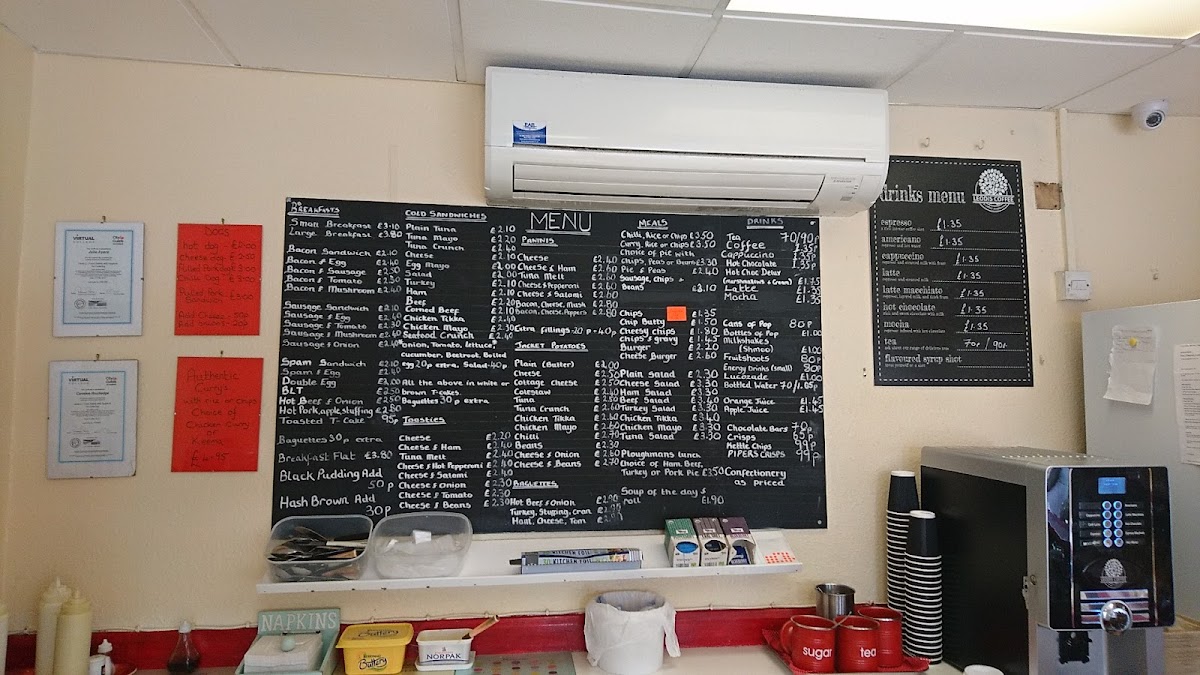 VIRTUAL
VIRTUAL
DOGS
Hot dog - £2.00
Authentic
Currys
with rice or chips
Choice of
Chicken Curry
or
Keema
£4.45
NO
BREAKFASTS
Small Breakfast £3.10
Large Breakfast £3.80
Bacon Sandwich £2.10
Bacon & Egg £2.40
Bacon & Sausage £2.30
Bacon & Tomato £2.30
Bacon & Mushroom £2.40
Sausage Sandwich £2.10
Sausage & Egg £2.40
Sausage & Tomato £2.30
Sausage & Mushroom £2.40
Sausage & Onion £2.40
Spam Sandwich £2.10
Spam & Egg £2.40
Double Egg £2.00
BLT £2.50
Hot Beef & Onion £2.50
Hot Pork, apple, stuffing £2.80
Toasted T-Cake 95p
Baguettes 30p extra
Breakfast Flat £3.80
Black Pudding Add
50p
Hash Brown Add
30p
COLD SANDWICHES
Plain Tuna £2.10
Tuna Mayo £2.20
Tuna Crunch £2.40
Cheese £2.10
Egg Mayo £2.00
Salad £2.00
Turkey £2.10
Ham £2.10
Beef £2.20
Corned Beef £2.10
Chicken Tikka £2.40
Chicken Mayo £2.30
Seafood Crunch £2.40
Onion, Tomato, Lettuce
Cucumber, Beetroot, Boiled
Egg 20p extra. Salad 40p
All the above in white or
brown T-cakes.
Baguettes 30p extra
Toasties
Cheese £2.20
Cheese & Ham £2.40
Tuna Melt £2.40
Cheese & Hot Pepperoni £2.40
Cheese & Salami £2.40
Cheese & Onion £2.30
Cheese & Tomato £2.30
Cheese & Beans £2.30
MENU
PANINIS
Cheese £2.40
Cheese & Ham £2.60
Tuna Melt £2.60
Cheese & Pepperoni £2.60
Cheese & Salami £2.60
Bacon, Cheese, Mush £2.80
Bacon, Cheese, Peppers £2.80
Extra fillings 20p - 40p
JACKET POTATOES
Plain (Butter) £2.00
Cheese £2.50
Cottage Cheese £2.50
Coleslaw
Tuna
Tuna Crunch £2.60
Chicken Tikka £2.60
Chicken Mayo £2.60
Chilli £2.70
Beans £2.30
Cheese & Onion £2.60
Cheese & Beans £2.70
BAGUETTES
Hot Beef & Onion £2.90
Turkey, Stuffing, cran
Ham, Cheese, Tom
MEALS
Chilli, Rice or Chips £3.50
Curry, Rice or Chips £3.50
Choice of pie with
Chips, Peas or Gravy £3.30
Pie & Peas £2.40
Sausage, chips &
Beans £3.10
Chips £1.35
Chip Butty £1.50
Cheesy chips £1.80
Chips & gravy £1.45
Burger £2.20
Cheese Burger £2.60
Plain Salad £2.30
Cheese Salad £3.30
Ham Salad £3.30
Beef Salad £3.40
Turkey Salad £3.30
Chicken Tikka £3.40
Chicken Mayo £3.30
Tuna Salad £3.30
Ploughmans Lunch
Choice of Ham, Beef,
Turkey or Pork Pie £3.50
Soup of the day &
roll £1.90
DRINKS
Tea 70/90p
Coffee
Cappuccino £1.35
Hot Chocolate £1.35
Hot Choc Delux
(Marshmallows & Cream) £1.75
Latte £1.35
Mocha £1.35
Cans of Pop 80p
Bottles of Pop £1.00
Milkshakes
(Shmoo) £1.00
Fruitshoots 80p
Energy Drinks (small) 80p
Lucozade £1.00
Bottled Water 70/1.05p
Orange Juice £1.45
Apple Juice £1.45
Chocolate Bars 70p
Crisps 65p
Kettle Chips 99p
PIPERS CRISPS 99p
Confectionery
as priced
drinks menu
LEODIS COFFEE
espresso £1.35
americano £1.35
cappuccino £1.35
latte £1.35
latte macchiato £1.35
hot chocolate £1.35
mocha £1.35
tea 70p / 90p
flavoured syrup shot
KITCHEN FOIL
NAPKINS
Buttery
Buttery
NORPAK
sugar
tea